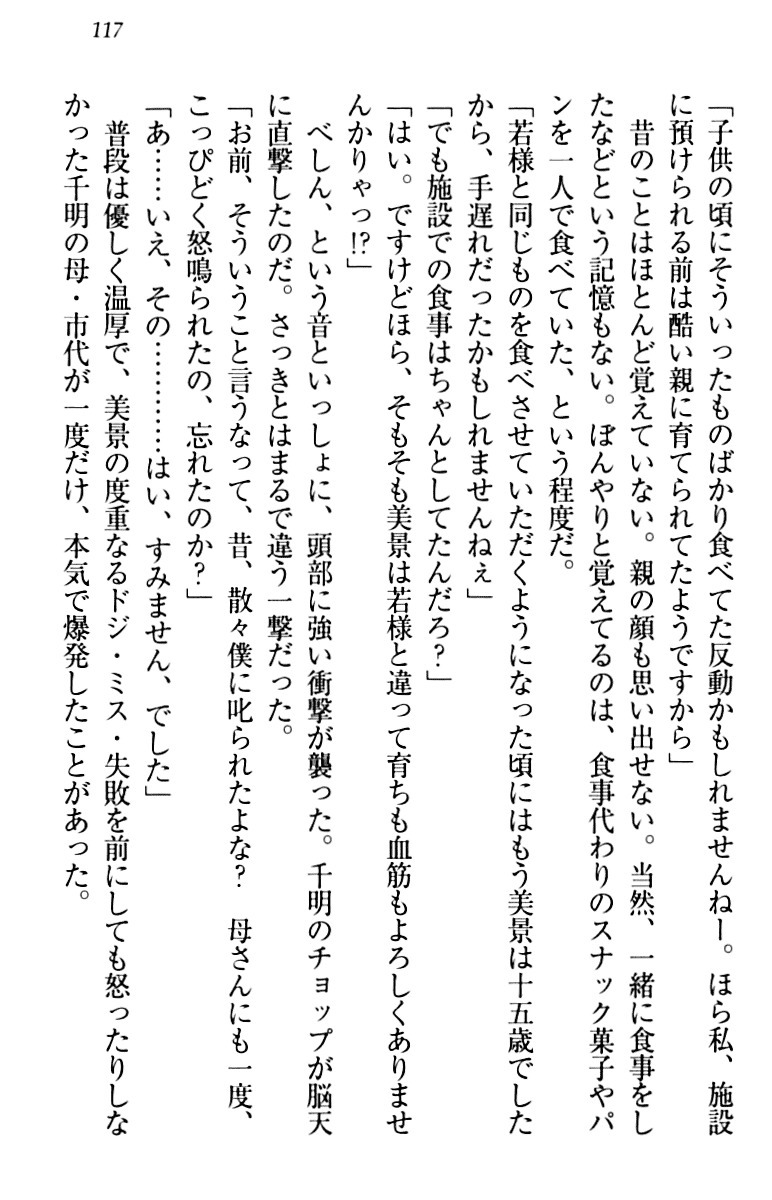 117
「子供の頃にそういったものばかり食べてた反動かもしれませんねー。ほら私、施設
に預けられる前は酷い親に育てられてたようですから」
昔のことはほとんど覚えていない。親の顔も思い出せない。当然、一緒に食事をし
たなどという記憶もない。ぼんやりと覚えてるのは、食事代わりのスナック菓子やパ
ンを一人で食べていた、という程度だ。
「若様と同じものを食べさせていただくようになった頃にはもう美景は十五歳でした
から、手遅れだったかもしれませんねぇ」
「でも施設での食事はちゃんとしてたんだろ？」
「はい。ですけどほら、そもそも美景は若様と違って育ちも血筋もよろしくありませ
んかりゃっ!?」
べしん、という音といっしょに、頭部に強い衝撃が襲った。千明のチョップが脳天
に直撃したのだ。さっきとはまるで違う一撃だった。
「お前、そういうこと言うなって、昔、散々僕に叱られたよな？　母さんにも一度、
こっぴどく怒鳴られたの、忘れたのか？」
「あ……いえ、その…………はい、すみません、でした」
普段は優しく温厚で、美景の度重なるドジ・ミス・失敗を前にしても怒ったりしな
かった千明の母・市代が一度だけ、本気で爆発したことがあった。